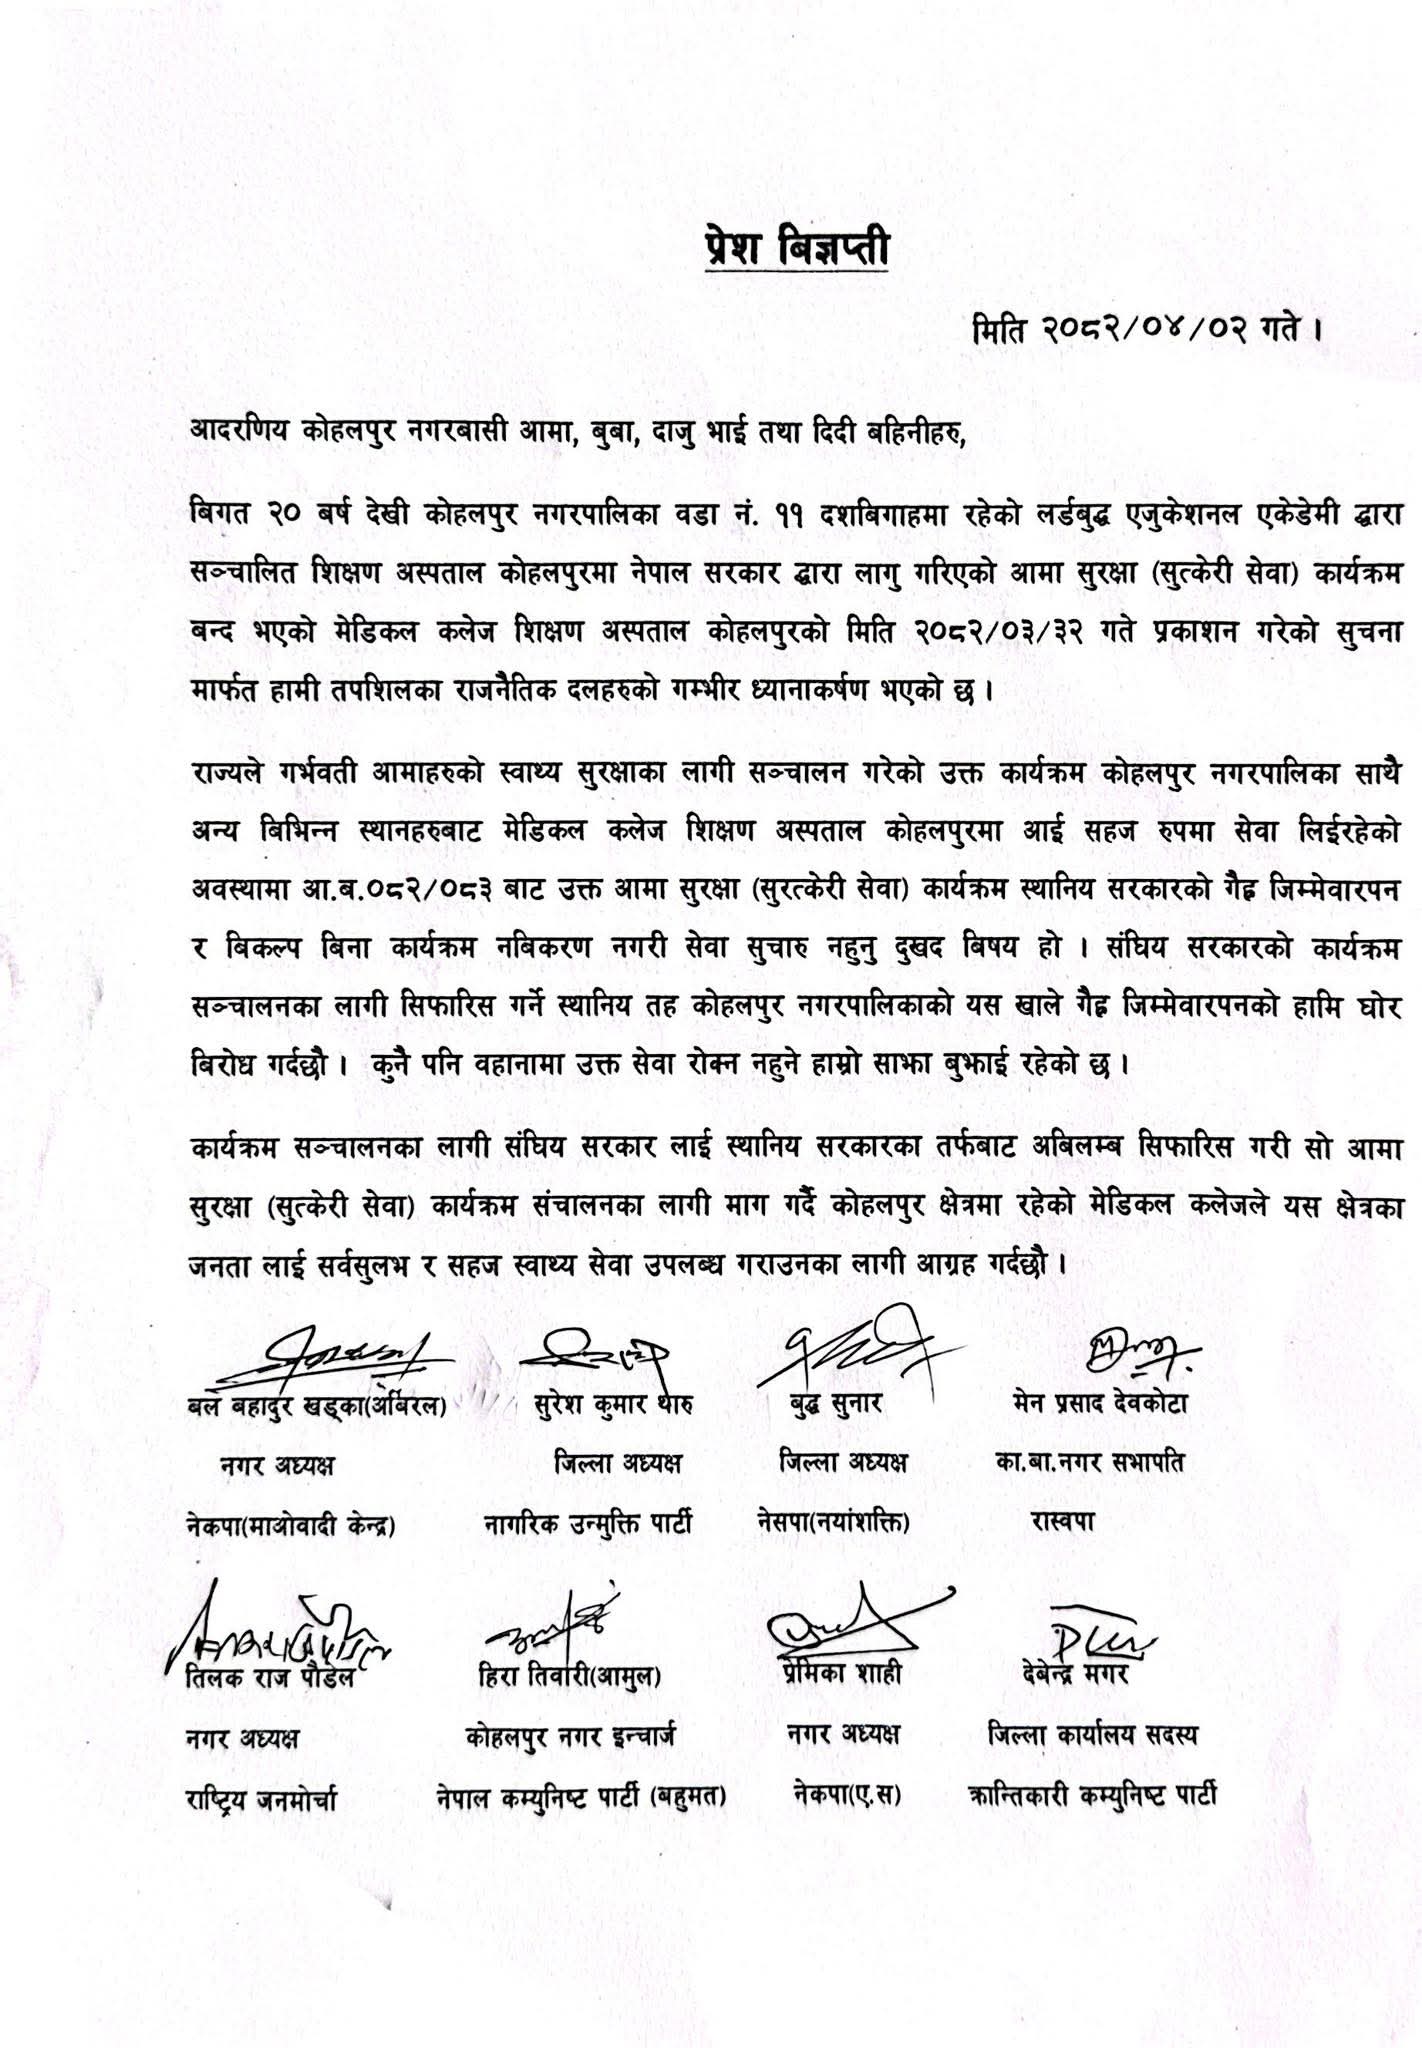 प्रेश बिज्ञप्ती
मिति २०८२/०४/०२ गते ।
आदरणिय कोहलपुर नगरबासी आमा, बुबा, दाजु भाई तथा दिदी बहिनीहरु,
बिगत २० बर्ष देखी कोहलपुर नगरपालिका वडा नं. ११ दशबिगाहमा रहेको लर्डबुद्ध एजुकेशनल एकेडेमी द्धारा
सञ्चालित शिक्षण अस्पताल कोहलपुरमा नेपाल सरकार द्धारा लागु गरिएको आमा सुरक्षा (सुत्केरी सेवा) कार्यक्रम
बन्द भएको मेडिकल कलेज शिक्षण अस्पताल कोहलपुरको मिति २०८२/०३/३२ गते प्रकाशन गरेको सुचना
मार्फत हामी तपशिलका राजनैतिक दलहरुको गम्भीर ध्यानाकर्षण भएको छ ।
राज्यले गर्भवती आमाहरुको स्वाथ्य सुरक्षाका लागी सञ्चालन गरेको उक्त कार्यक्रम कोहलपुर नगरपालिका साथै
अन्य बिभिन्न स्थानहरुबाट मेडिकल कलेज शिक्षण अस्पताल कोहलपुरमा आई सहज रुपमा सेवा लिईरहेको
अवस्थामा आ.ब.०८२/०८३ बाट उक्त आमा सुरक्षा (सुरत्केरी सेवा) कार्यक्रम स्थानिय सरकारको गैह्र जिम्मेवारपन
र बिकल्प बिना कार्यक्रम नबिकरण नगरी सेवा सुचारु नहुनु दुखद बिषय हो । संघिय सरकारको कार्यक्रम
सञ्चालनका लागी सिफारिस गर्ने स्थानिय तह कोहलपुर नगरपालिकाको यस खाले गैह्र जिम्मेवारपनको हामि घोर
बिरोध गर्दछौ । कुनै पनि वहानामा उक्त सेवा रोक्न नहुने हाम्रो साझा बुझाई रहेको छ ।
कार्यक्रम सञ्चालनका लागी संघिय सरकार लाई स्थानिय सरकारका तर्फबाट अबिलम्ब सिफारिस गरी सो आमा
सुरक्षा (सुत्केरी सेवा) कार्यक्रम संचालनका लागी माग गर्दै कोहलपुर क्षेत्रमा रहेको मेडिकल कलेजले यस क्षेत्रका
जनता लाई सर्वसुलभ र सहज स्वाथ्य सेवा उपलब्ध गराउनका लागी आग्रह गर्दछौ ।
बल बहादुर खड्का(अबिरल) सुरेश कुमार थारु बुद्ध सुनार मेन प्रसाद देवकोटा
नगर अध्यक्ष जिल्ला अध्यक्ष जिल्ला अध्यक्ष का.बा.नगर सभापति
नेकपा(माओवादी केन्द्र) नागरिक उन्मुक्ति पार्टी नेसपा(नयांशक्ति) रास्वपा
तिलक राज पौडेल हिरा तिवारी(आमुल) प्रेमिका शाही देबेन्द्र मगर
नगर अध्यक्ष कोहलपुर नगर इन्चार्ज नगर अध्यक्ष जिल्ला कार्यालय सदस्य
राष्ट्रिय जनमोर्चा नेपाल कम्युनिष्ट पार्टी (बहुमत) नेकपा(ए.स) क्रान्तिकारी कम्युनिष्ट पार्टी